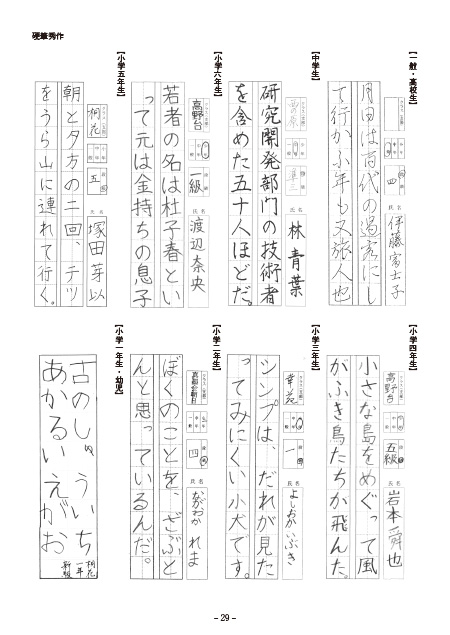 硬筆秀作
【一般・高校生】
伊藤富士子
月日は百代の過客にし
て行かふ年も又旅人也
【中学生】
林青葉
研究開発部門の技術者
を含めた五十人ほどだ。
【小学六年生】
高野台
一級
渡辺奈央
若者の名は杜子春とい
って元は金持ちの息子
【小学五年生】
桐花
五
塚田芽以
朝と夕方の二回、テツ
をうら山に連れて行く。
【小学四年生】
高野台
五級
岩本舜也
小さな島をめぐって風
がふき鳥たちが飛んだ。
【小学三年生】
幸苑
一
よしおかいぶき
シンプは、だれが見た
ってみにくい小犬です。
【小学二年生】
四
ながおかれま
ぼくのことを、ざぶと
んと思っているんだ。
【小学一年生・幼児】
古のしゅういち
あかるいえがお
桐花
一年
新級
- 29 -